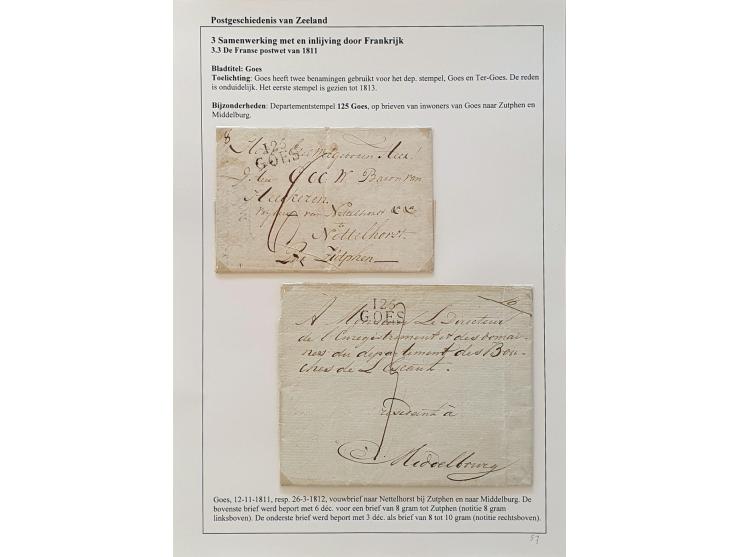 Postgeschiedenis van Zeeland
3 Samenwerking met en inlijving door Frankrijk
3.3 De Franse postwet van 1811
Bladtitel: Goes
Toelichting: Goes heeft twee benamingen gebruikt voor het dep. stempel, Goes en Ter-Goes. De reden
is onduidelijk. Het eerste stempel is gezien tot 1813.
Bijzonderheden: Departementstempel 125 Goes, op brieven van inwoners van Goes naar Zutphen en
Middelburg.
8
125
GOES
Baron van
Heeckeren
van Nettelhorst
Nettelhorst
Zutphen
125
GOES
A Monsieur Le Directeur
de l'Enregistrement et des domai-
nes du département des Bou-
ches de L'Escaut.
residend à
Middelbourg
Goes, 12-11-1811, resp. 26-3-1812, vouwbrief naar Nettelhorst bij Zutphen en naar Middelburg. De
bovenste brief werd beport met 6 déc. voor een brief van 8 gram tot Zutphen (notitie 8 gram
linksboven). De onderste brief werd beport met 3 déc. als brief van 8 tot 10 gram (notitie rechtsboven).
57